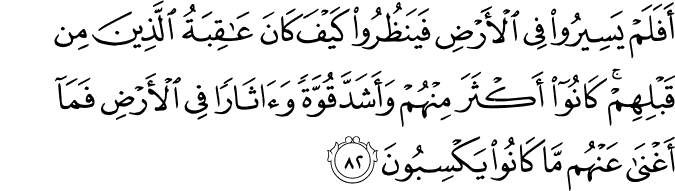 أَفَلَمْ يَسِيرُوا۟ فِى ٱلْأَرْضِ فَيَنظُرُوا۟ كَيْفَ كَانَ عَـٰقِبَةُ ٱلَّذِينَ مِن
قَبْلِهِمْ ۚ كَانُوٓا۟ أَكْثَرَ مِنْهُمْ وَأَشَدَّ قُوَّةً وَءَاثَارًا فِى ٱلْأَرْضِ فَمَآ
أَغْنَىٰ عَنْهُم مَّا كَانُوا۟ يَكْسِبُونَ ٨٢